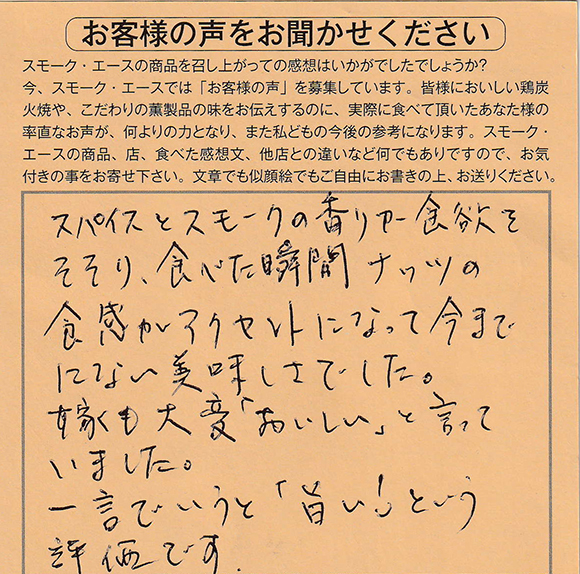 お客様の声をお聞かせください
スモーク・エースの商品を召し上がっての感想はいかがでしたでしょうか?
今、スモーク・エースでは「お客様の声」を募集しています。皆様においしい鶏炭
火焼や、こだわりの薫製品の味をお伝えするのに、実際に食べて頂いたあなた様の
率直なお声が、何よりの力となり、また私どもの今後の参考になります。スモーク・
エースの商品、店、食べた感想文、他店との違いなど何でもありですので、お気
付きの事をお寄せ下さい。文章でも似顔絵でもご自由にお書きの上、お送りください。
スパイスとスモークの香りが食欲を
そそり、食べた瞬間ナッツの
食感がアクセントになって今まで
にない美味しさでした。
嫁も大変「おいしい」と言って
いました。
一言でいうと「旨い!」という
評価です.